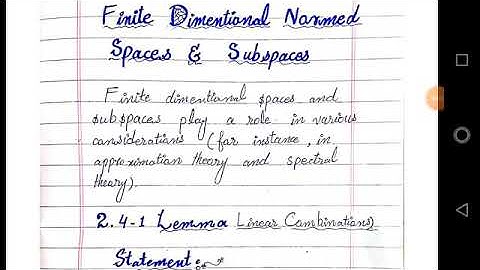 Finite Dimentional Normed
Spaces & Subspaces
Finite dimentional spaces and
subspaces play a role in various
considerations (for instance, in
approximation theory and spectral
theory).
2.4-1 Lemma Linear Combinations)
Statement: